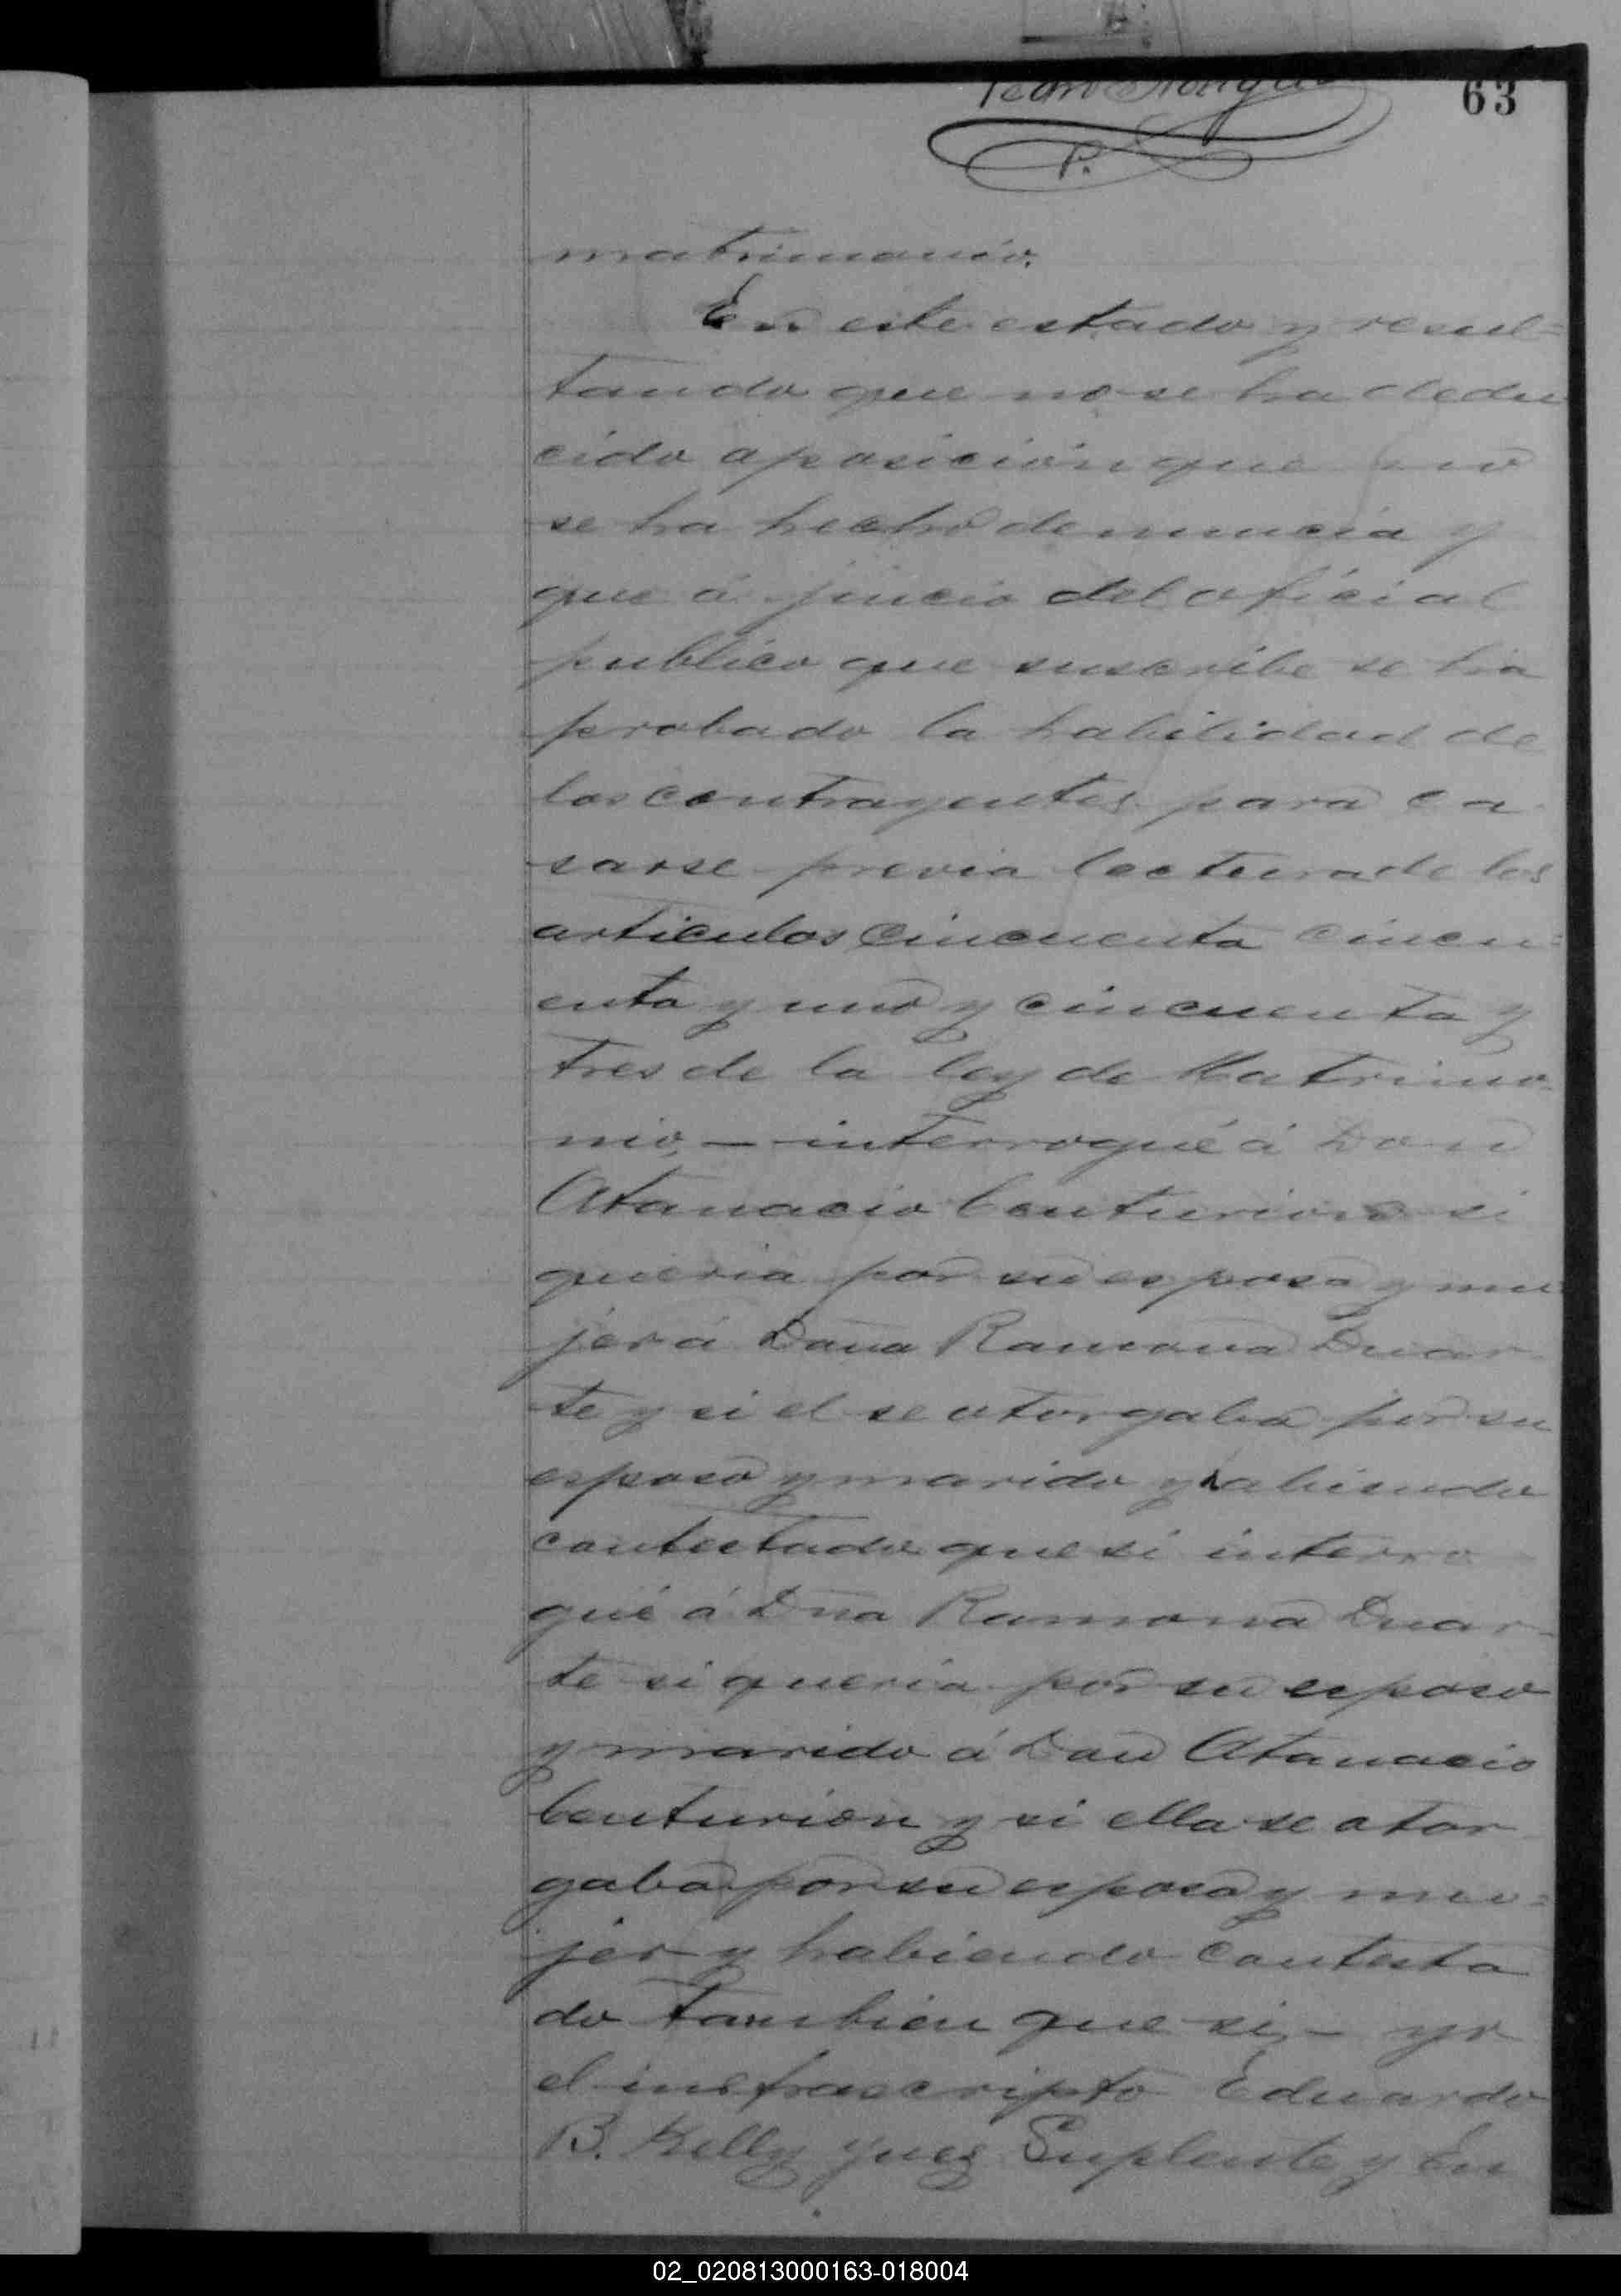 63
Pedro
P.
matrimonio.
En este estado y resul=
tando que no se ha dedu
cido oposición que no
se ha hecho denuncia y
que á juicio del oficial
publico que suscribe se ha
probado la habilidad de
los contrayentes para ca
sarse previa lectura de los
articulos cincuenta cincu=
enta y uno y cincuenta y
tres de la ley de Matrimo
nio, — interrogué á Don
Atanacio Centurion si
queria por su esposa y mu
jer á Doña Ramona Duar
te y si el se otorgaba por su
esposo y marido y habiendo
contestado que si interro
gué á Dña Ramona Duar-
te si queria por su esposo
y marido á Don Atanacio
Centurión y si ella se otor
gaba por su esposa y mu=
jer y habiendo contesta
do tambien que si, — yo
el infrascripto Eduardo
B. Kelly Juez Suplente y En
02_020813000163-018004